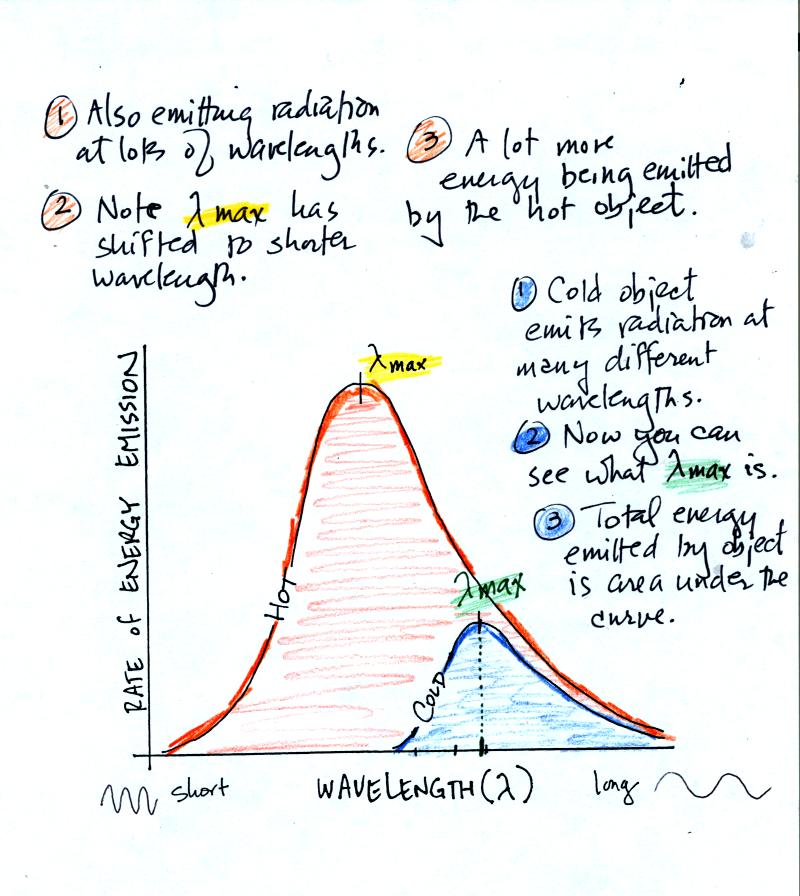 1 Also emitting radiation
at lots of wavelengths.
2 Note λ max has
shifted to shorter
wavelength.
3 A lot more
energy being emitted
by the hot object.
1 Cold object
emits radiation at
many different
wavelengths.
2 Now you can
see what λmax is.
3 Total energy
emitted by object
is area under the
curve.
λmax
RATE of ENERGY EMISSION
HOT
λmax
COLD
short
WAVELENGTH (λ)
long